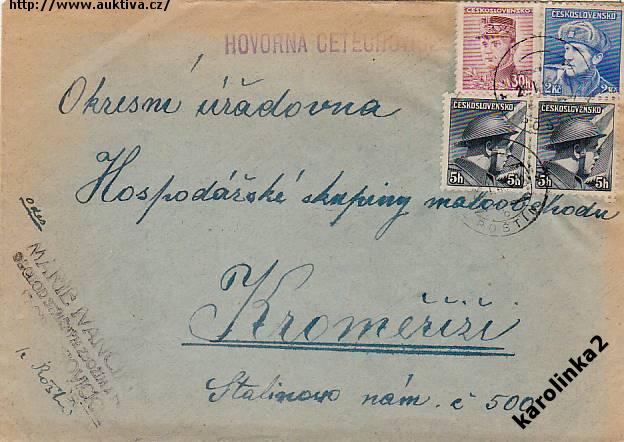 http://www.auktiva.cz/
HOVORNA CETECHOVICE
ČESKOSLOVENSKO
30h
ČESKOSLOVENSKO
2Kčs
ČESKOSLOVENSKO
5h 5h
ČESKOSLOVENSKO
5h 5h
ROŠTÍN
Okresní úřadovna
Hospodářské skupiny maloobchodu
Kroměříži
Stalinovo nám. č 500
MARIE
p. Roštín
karolinka2